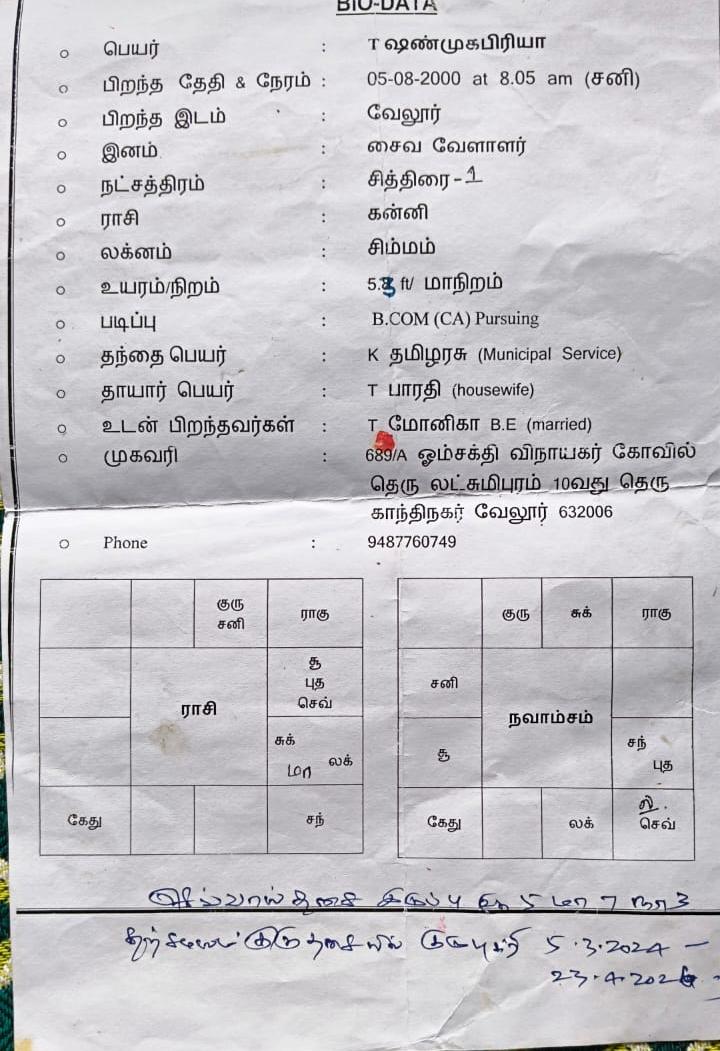 BIO-DATA
பெயர் : T ஷண்முகபிரியா
பிறந்த தேதி & நேரம் : 05-08-2000 at 8.05 am (சனி)
பிறந்த இடம் : வேலூர்
இனம் : சைவ வேளாளர்
நட்சத்திரம் : சித்திரை-1
ராசி : கன்னி
லக்னம் : சிம்மம்
உயரம்/நிறம் : 5.3 ft/ மாநிறம்
படிப்பு : B.COM (CA) Pursuing
தந்தை பெயர் : K தமிழரசு (Municipal Service)
தாயார் பெயர் : T பாரதி (housewife)
உடன் பிறந்தவர்கள் : T மோனிகா B.E (married)
முகவரி : 689/A ஓம்சக்தி விநாயகர் கோவில்
தெரு லட்சுமிபுரம் 10வது தெரு
காந்திநகர் வேலூர் 632006
Phone : 9487760749
குரு
சனி
ராகு
சூ
புத
செவ்
ராசி
சுக்
மா லக்
கேது
சந்
குரு
சுக்
ராகு
சனி
நவாம்சம்
சூ
சந்
புத
கேது
லக்
செவ்
செவ்வாய் தசை இருப்பு 5 மா 7 நா 3
குரு தசையில் 5.3.2024 –
23.4.2026